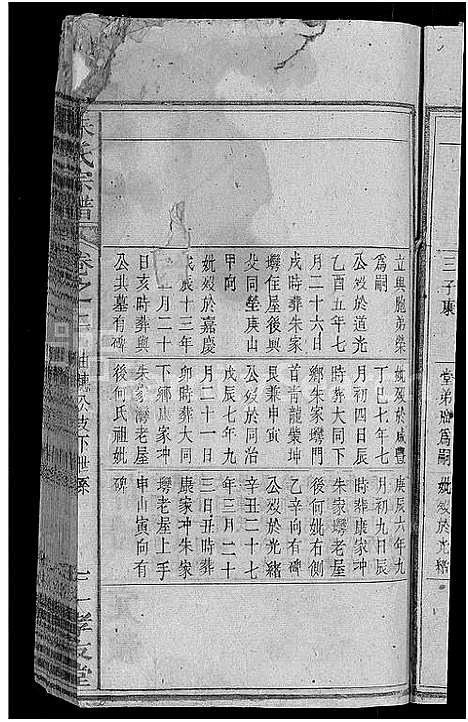 三子東
堂弟
為嗣
妣歿於光緒
立與胞弟榮
為嗣
公歿於道光
乙酉五年七
月二十六日
戌時葬朱家
塆住屋後與
父同塋庚山
甲向
妣歿於嘉慶
戊辰十三年
十月二十
日亥時葬與
公共墓有碑
妣歿於咸豐
丁巳七年七
月初四日辰
時葬大同下
鄉朱家塆門
首青龍嘴坤
艮兼申寅
公歿於同治
戊辰七年九
月二十一日
卯時葬大同
下鄉康家冲
朱家灣老屋
後何氏祖妣
庚辰六年九
月初九日辰
時葬康家冲
朱家塆老屋
後何妣右側
乙辛向有碑
公歿於光緒
辛丑二十七
年三月二十
三日丑時葬
康家冲朱家
塆老屋上手
申山寅向有
碑
朱氏宗譜
卷之十二
公支下世系
孝友堂